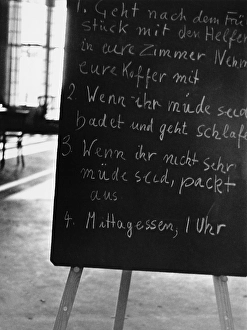 1. Geht nach dem Früh
stück mit den Helfer
in eure Zimmer Nehm
eure Koffer mit
2. Wenn ihr müde seid
badet und geht schlaf
3. Wenn ihr nicht sehr
müde seid, packt
aus
4. Mittagessen, 1 Uhr